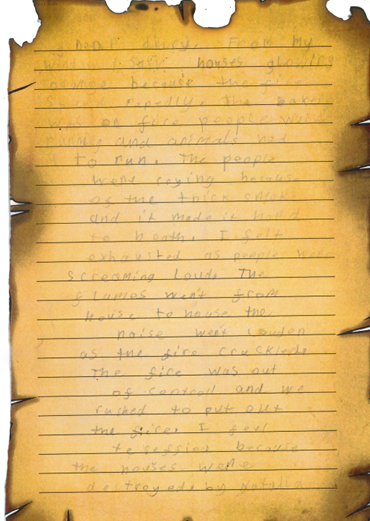 diary. From my
houses glowing
orange because the fire
rapedlly. the baker
was on fire people were
and animals had
to run. The people
were crying because
of the thick smok
and it made it hard
to breath. I felt
exhausted as people were
Screaming Loud. The
flames went from
House to house the
noise went Louder
as the fire crackled.
The fire was out
of control and we
rushed to put out
the fire. I feel
because
the houses were
destroyed. by Natalia